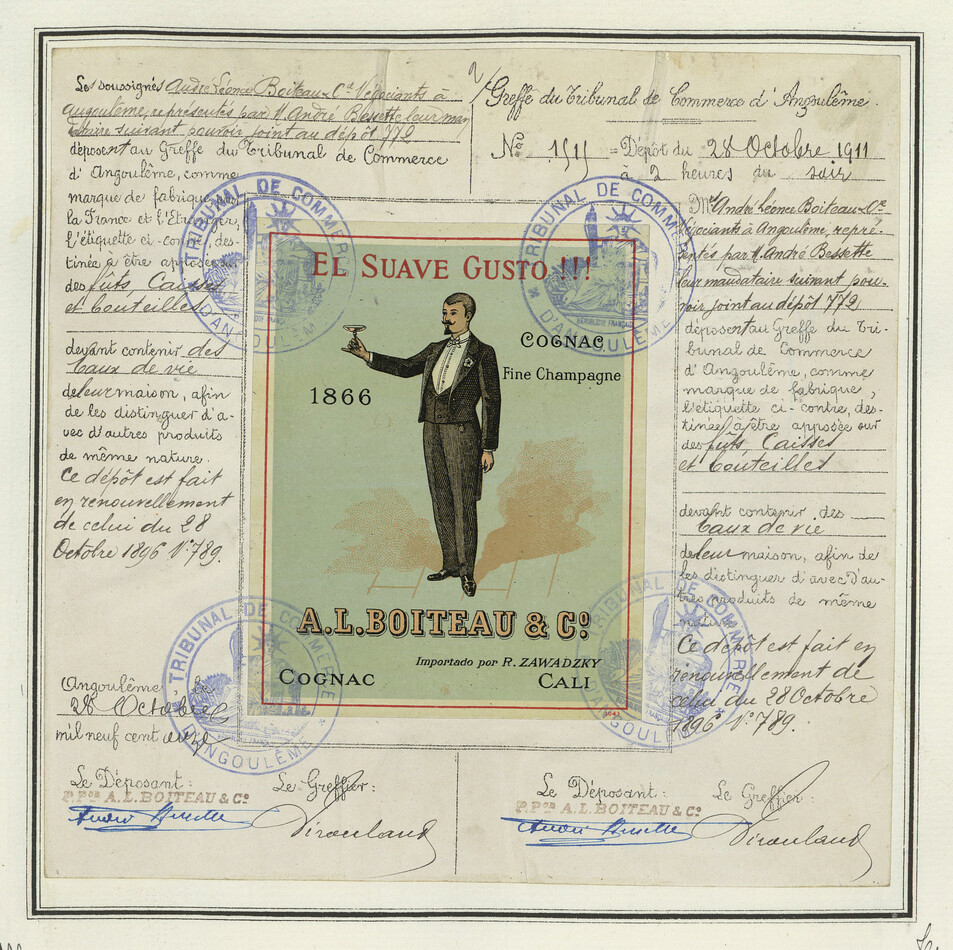 Les soussignés André Léonce Boiteau & Cie Négociants à
Angoulême, représentés par M. André Bessette leur man
dataire suivant pouvoir joint au dépôt 772
déposent au Greffe du Tribunal de Commerce
d'Angoulême, comme
marque de fabrique,
la France et l'Etranger,
l'étiquette ci-contre, des-
tinée à être apposée sur
des fûts, Caisses
et bouteilles
devant contenir des
Eaux de vie
de leur maison, afin
de les distinguer d'a-
vec d'autres produits
de même nature.
Ce dépôt est fait
en renouvellement
de celui du 28
Octobre 1896 N° 789.
Angoulême, le
28 Octobre
mil neuf cent onze
Le Déposant:
P. Pon A.L. BOITEAU & Co
André Bessette
Le Greffier:
Greffe du Tribunal de Commerce d'Angoulême.
No 1515 = Dépôt du 28 Octobre 1911
à 2 heures du soir
Mrs André Léonce Boiteau & Cie
Négociants à Angoulême, repré-
sentés par M. André Bessette
leur mandataire suivant pou-
voir joint au dépôt 772
déposent au Greffe du Tri-
bunal de Commerce
d'Angoulême, comme
marque de fabrique,
l'étiquette ci-contre, des-
tinée à être apposée sur
des fûts, Caisses
et bouteilles
devant contenir des
Eaux de vie
de leur maison, afin de
les distinguer d'avec d'au-
tres produits de même
nature
Ce dépôt est fait en
renouvellement de
celui du 28 Octobre
1896 N° 789.
Le Déposant:
P. Pon A.L. BOITEAU & Co
André Bessette
Le Greffier:
EL SUAVE GUSTO !!!
COGNAC
Fine Champagne
1866
A.L.BOITEAU & Co
Importado por R. ZAWADZKY
COGNAC CALI
TRIBUNAL DE COMMERCE D'ANGOULÊME
TRIBUNAL DE COMMERCE D'ANGOULÊME
RÉPUBLIQUE FRANÇAISE
TRIBUNAL DE COMMERCE D'ANGOULÊME
TRIBUNAL DE COMMERCE D'ANGOULÊME